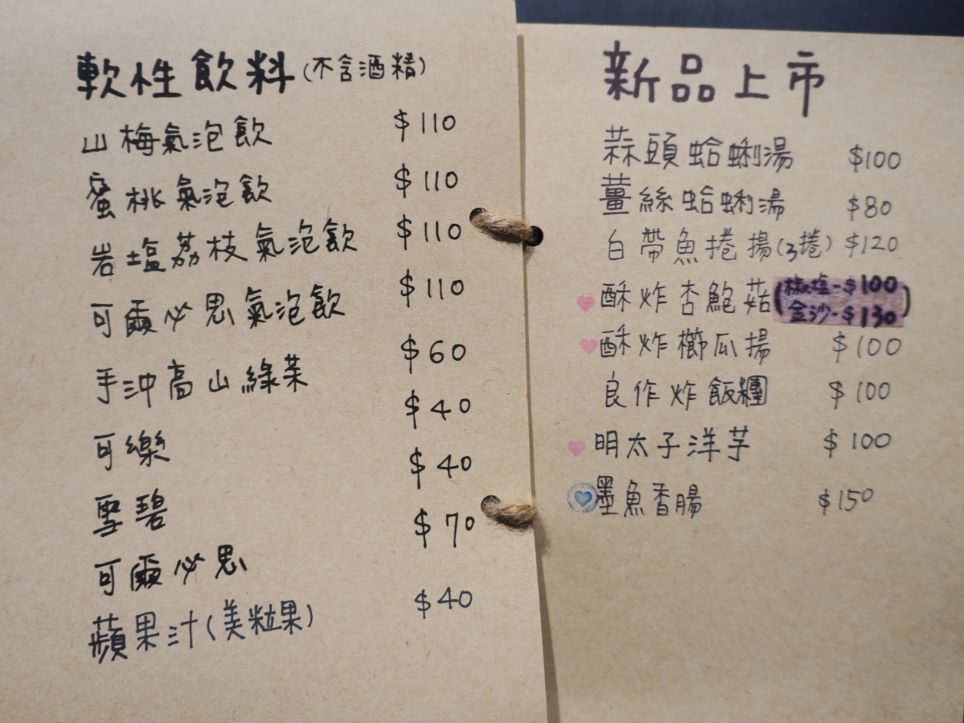 軟性飲料(不含酒精)
山梅氣泡飲 $110
蜜桃氣泡飲 $110
岩塩荔枝氣泡飲 $110
可爾必思氣泡飲 $110
手沖高山綠茶 $60
可樂 $40
雪碧 $40
可爾必思 $70
蘋果汁(美粒果) $40
新品上市
蒜頭蛤蜊湯 $100
薑絲蛤蜊湯 $80
白帶魚捲揚(3捲) $120
酥炸杏鮑菇(椒塩-$100
金沙-$130)
酥炸櫛瓜揚 $100
良作炸飯糰 $100
明太子洋芋 $100
墨魚香腸 $150